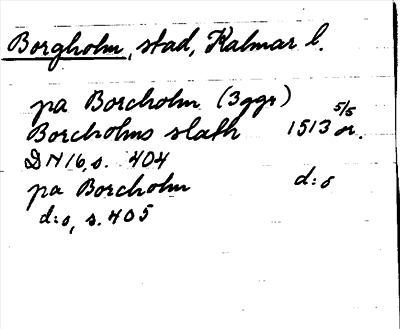 Borgholm, stad, Kalmar l.
pa Borcholm (3ggr)
Borcholms slath 1513 5/5 or.
DN16, s. 404
pa Borcholm d:o
d:o, s. 405